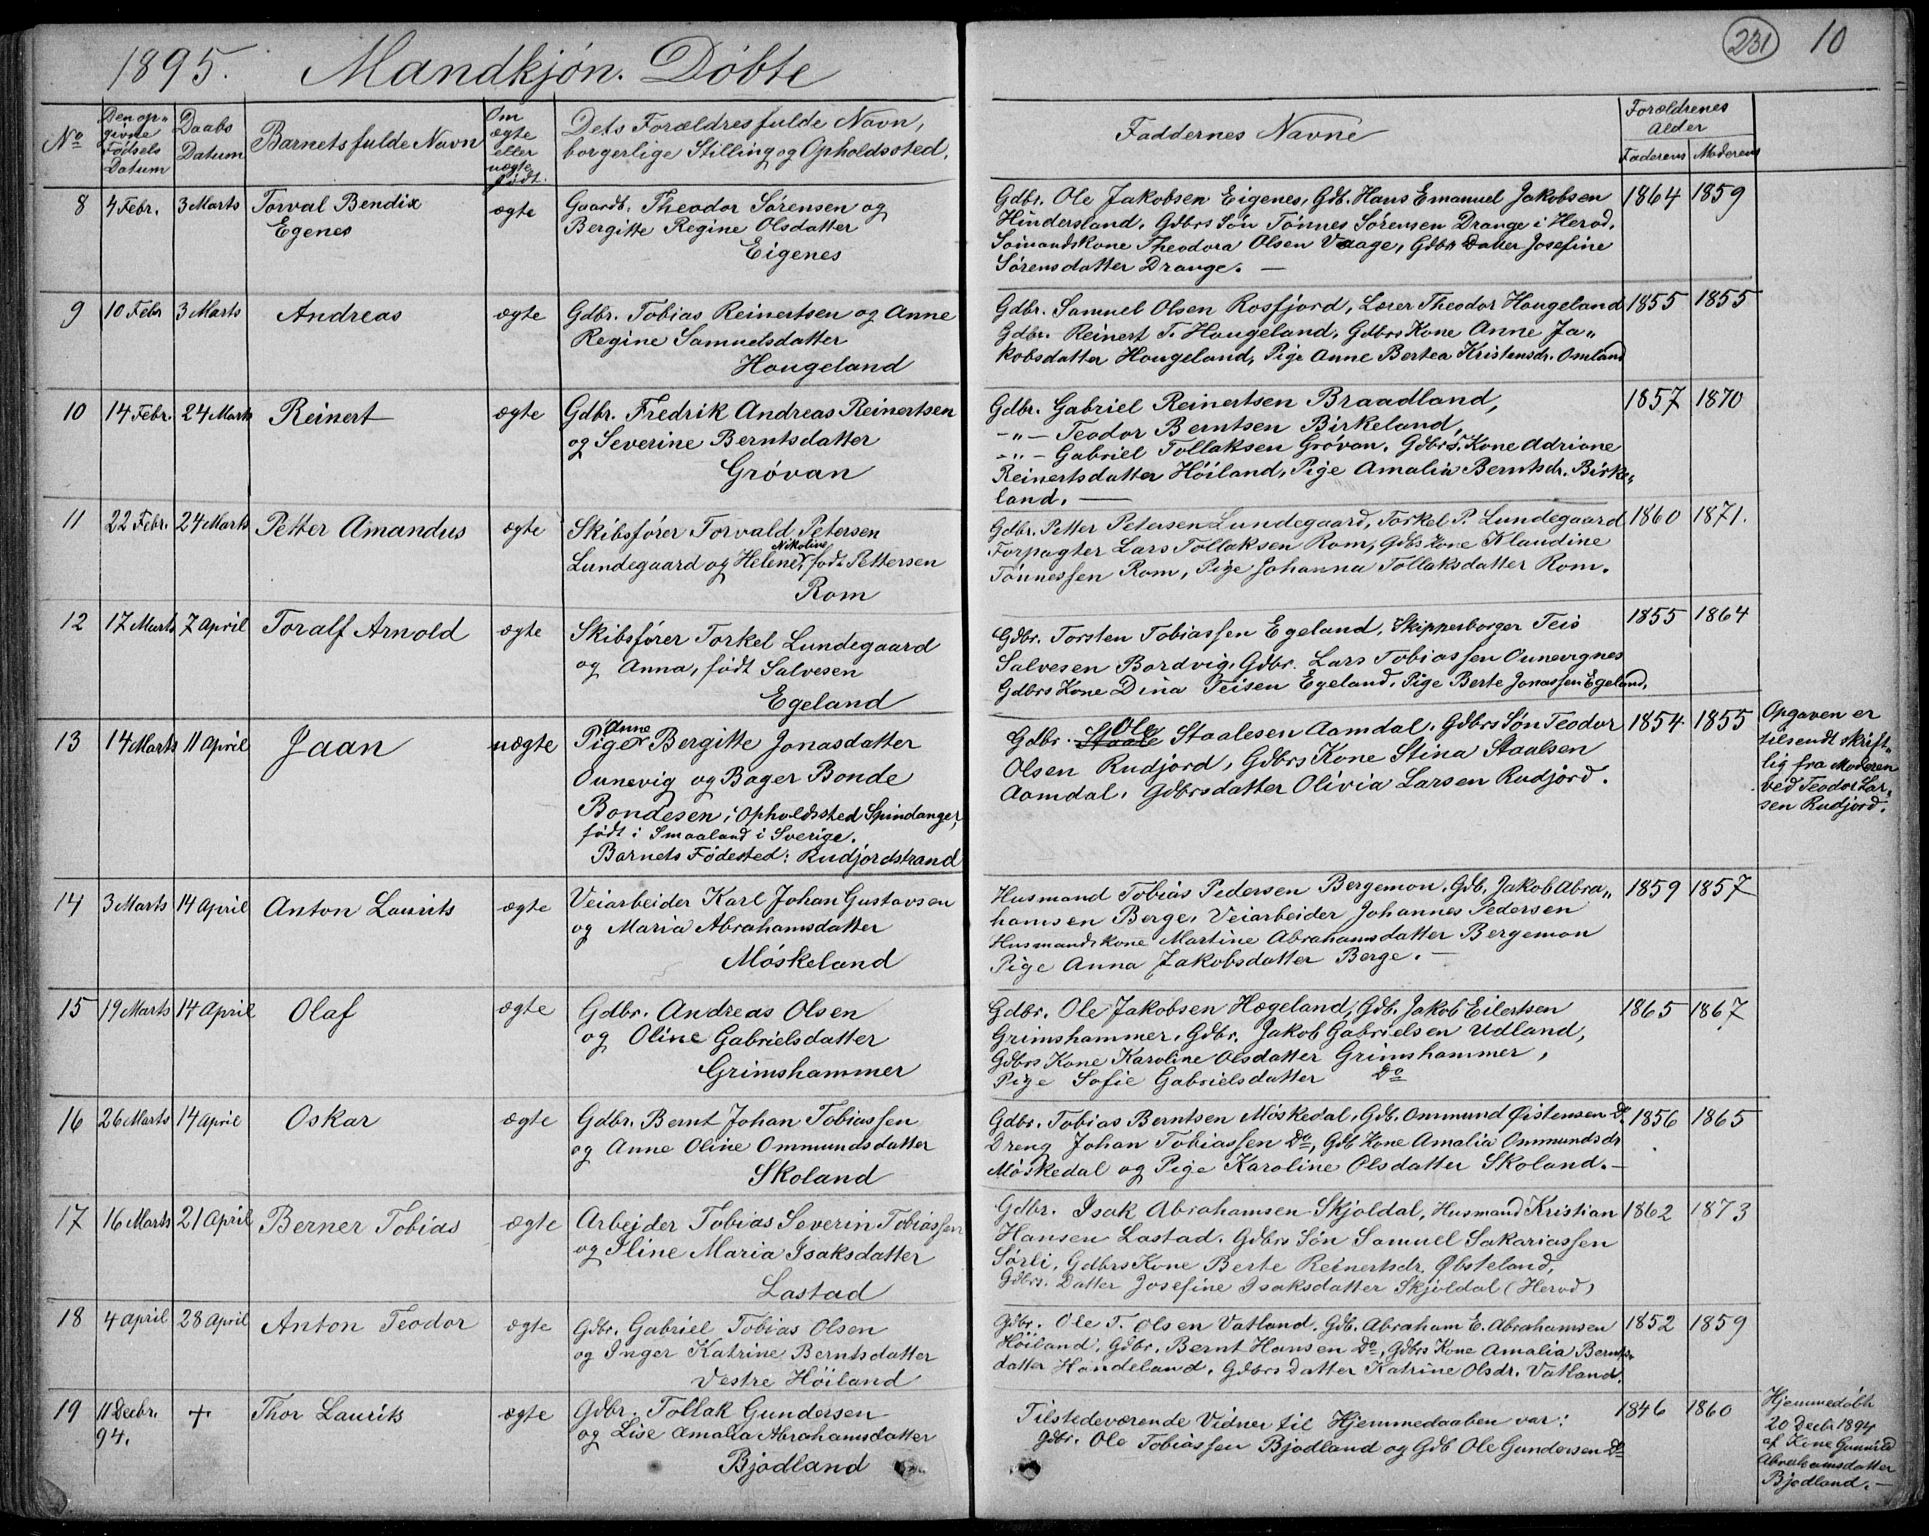 1895. Mandkjøn. Døbte
231 10
No
Den op-
givne
Fødsels
Datum
Daabs
Datum
Barnets fulde Navn
Om
ægte
eller
uægte
født.
Dets Forældres fulde Navn,
borgerlige Stilling og Opholdssted.
Faddernes Navne
Forældrenes
Alder
Faderens Moderens
8 4 Febr. 3 Marts Torval Bendix
Egenes
ægte
Gaardb. Theodor Sørensen og
Bergitte Regine Olsdatter
Eigenes
Gdbr. Ole Jakobsen Eigenes, Gdb. Hans Emanuel Jakobsen
Hindersland, Gdbrs Søn Tønnes Sørensen Drange i Herod,
Sømandskone Theodora Olsen Vaage, Gdbrs Datter Josefine
Sørensdatter Drange. —
1864 1859
9 10 Febr 3 Marts Andreas ægte
Gdbr. Tobias Reinertsen og Anne
Regine Samuelsdatter
Hougeland
Gdbr. Samuel Olsen Rosfjord, Lærer Theodor Hougeland
Gdbr. Reinert T. Hougeland, Gdbrs Kone Anne Ja„
kobsdatter Hougeland, Pige Anne Bertea Kristensdr. Omland
1855 1855
10 14 Febr. 24 Marts Reinert ægte
Gdbr. Fredrik Andreas Reinertsen
og Severine Berntsdatter
Grövan
Gdbr. Gabriel Reinertsen Braadland,
-„- Teodor Berntsen Birkeland,
-„- Gabriel Tollaksen Grövan, Gdbrs Kone Adriane
Reinertsdatter Höiland, Pige Amalia Berntsdr. Birke„
land. —
1857 1870
11 22 Febr. 24 Marts Petter Amandus ægte
Skibsfører Torvald Petersen
Lundegaard og Helene Nikoline, født Pettersen
Rom
Gdbr. Petter Petersen Lundegaard, Torkel P. Lundegaard
Forpagter Lars Tollaksen Rom, Gdbs Kone Klaudine
Tønnessen Rom, Pige Johanna Tollaksdatter Rom.
1860 1871.
12 17 Marts 7 April Toralf Arnold ægte
Skibsfører Torkel Lundegaard
og Anna, født Salvesen
Egeland
Gdbr. Torsten Tobiassen Egeland, Skipperborger Teis
Salvesen Bardvig, Gdbr. Lars Tobiassen Ounevignes
Gdbrs Kone Dina Teisen Egeland, Pige Berte Jonassen Egeland.
1855 1864
13 14 Marts 11 April Jaan uægte
Pige Anne Bergitte Jonasdatter
Ounevig og Bager Bonde
Bondesen, Opholdssted Spindanger,
født i Smaaland i Sverige.
Barnets Fødested: Rudjordstrand
Gdbr. Staale Ole Staalesen Aamdal, Gdbrs Søn Teodor
Olsen Rudjord, Gdbrs Kone Stina Staalsen
Aamdal, Gdbrsdatter Olivia Larsen Rudjord.
1854 1855
Opgaven er
tilsendt skrift„
lig fra Moderen
ved Teodor Lar„
sen Rudjord.
14 3 Marts 14 April Anton Laurits ægte
Veiarbeider Karl Johan Gustavsen
og Maria Abrahamsdatter
Möskeland
Husmand Tobias Pedersen Bergemon, Gdb. Jakob Abra„
hamsen Berge, Veiarbeider Johannes Pedersen
Husmandskone Martine Abrahamsdatter Bergemon
Pige Anna Jakobsdatter Berge. —
1859 1857
15 19 Marts 14 April Olaf ægte
Gdbr. Andreas Olsen
og Oline Gabrielsdatter
Grimshammer
Gdbr. Ole Jakobsen Hægeland, Gdb. Jakob Eilertsen
Grimshammer, Gdbr. Jakob Gabrielsen Udland,
Gdbrs Kone Karoline Olsdatter Grimshammer,
Pige Sofie Gabrielsdatter Do
1865 1867
16 26 Marts 14 April Oskar ægte
Gdbr. Bernt Johan Tobiassen
og Anne Oline Ommundsdatter
Skoland
Gdbr. Tobias Berntsen Möskedal, Gdb. Ommund Øistensen Do
Dreng Johan Tobiassen Do, Gdb Kone Amalia Ommundsdr
Möskedal og Pige Karoline Olsdatter Skoland. —
1856 1865
17 16 Marts 21 April Berner Tobias ægte
Arbeider Tobias Severin Tobiassen
og Iline Maria Isaksdatter
Lastad
Gdbr. Isak Abrahamsen Skjoldal, Husmand Kristian
Hansen Lastad, Gdbrs Søn Samuel Sakariassen
Sørli, Gdbrs Kone Berte Reinertsdr. Øbsteland,
Gdbrs. Datter Josefine Isaksdatter Skjoldal (Herod)
1862 1873
18 4 April 28 April Anton Teodor ægte
Gdbr. Gabriel Tobias Olsen
og Inger Katrine Berntsdatter
Vestre Höiland
Gdbr. Ole T. Olsen Vatland, Gdb. Abraham E. Abrahamsen
Höiland, Gdbr. Bernt Hansen Do, Gdbrs Kone Amalia Bernts„
datter Handeland, Gdbrs Datter Katrine Olsdr. Vatland.
1852 1859
19 11 Decbr.
94.
+ Thor Laurits ægte
Gdbr. Tollak Gundersen
og Lise Amalia Abrahamsdatter
Bjodland
Tilstedeværende Vidner til Hjemmedaaben var:
Gdbr. Ole Tobiassen Bjodland og Gdb Ole Gundersen Do
1846 1860
Hjemmedøbt
20 Decbr 1894
af Kone Gunvild
Abrahamsdatter
Bjodland. —